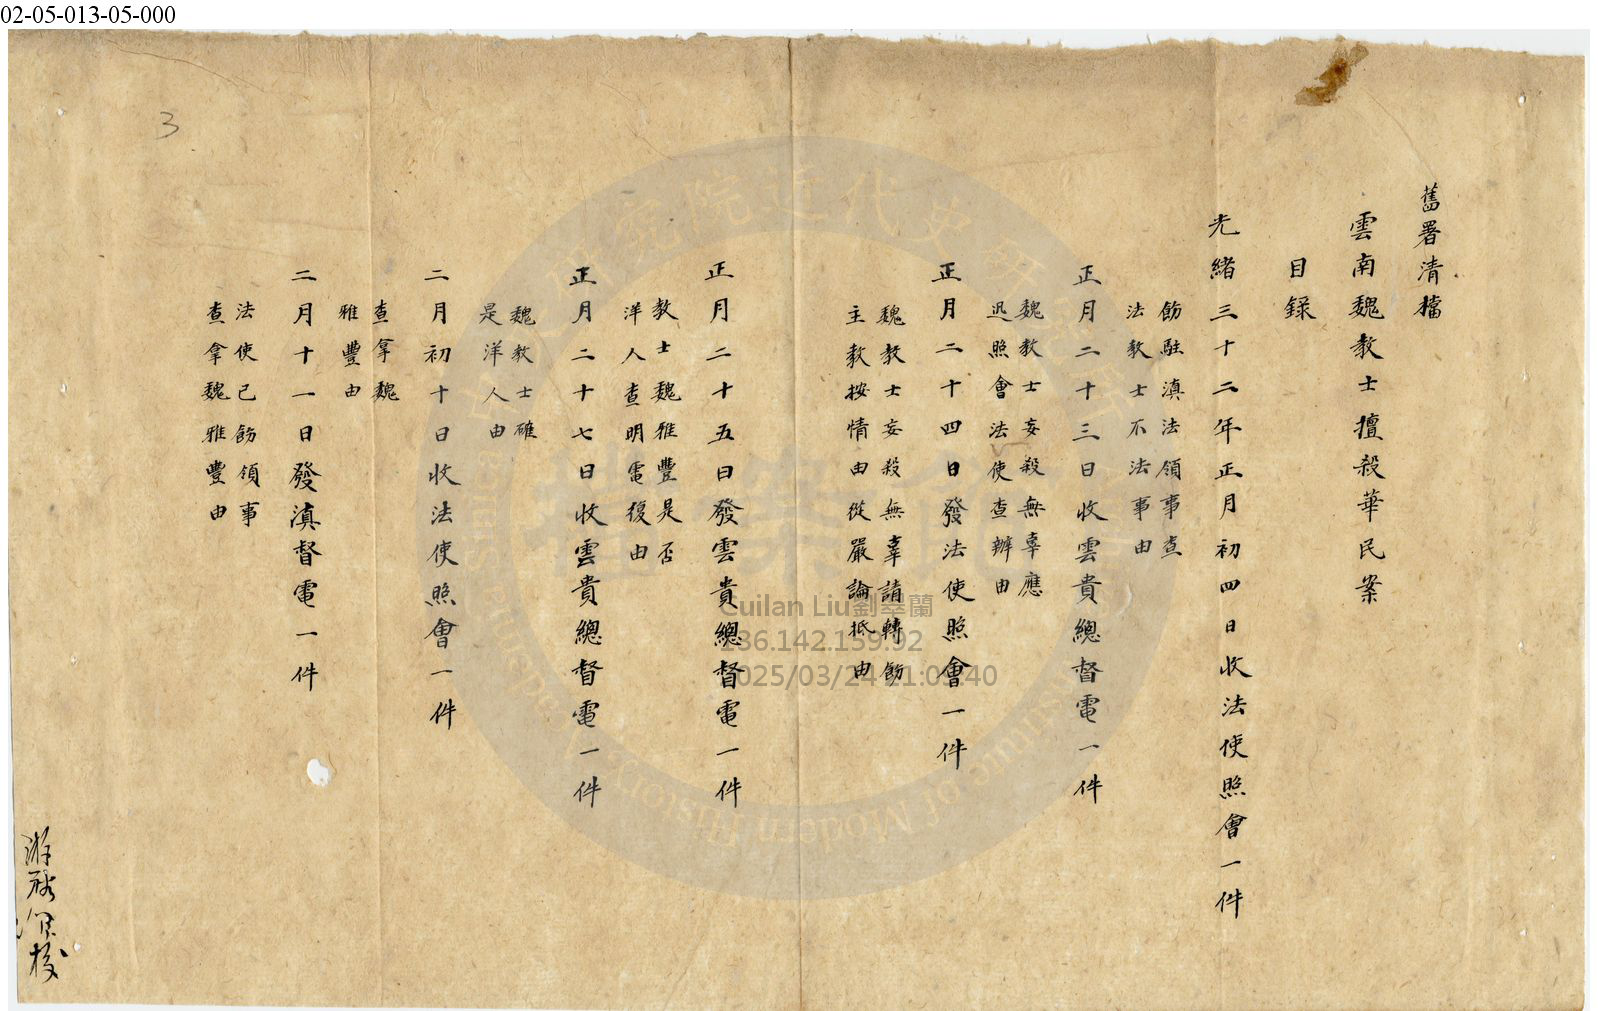 02-05-013-05-000
3
舊署清檔
雲南魏教士擅殺華民案
目錄
光緒三十二年正月初四日收法使照會一件
飭駐滇法領事查
法教士不法事由
正月二十三日收雲貴總督電一件
魏教士妄殺無辜應
迅照會法使查辦由
正月二十四日發法使照會一件
魏教士妄殺無辜請轉飭
主教按情由從嚴論抵由
正月二十五日發雲貴總督電一件
教士魏雅豐是否
洋人查明電復由
正月二十七日收雲貴總督電一件
魏教士確
是洋人由
二月初十日收法使照會一件
查拿魏
雅豐由
二月十一日發滇督電一件
法使已飭領事
查拿魏雅豐由
Cuilan Liu劉翠蘭
136.142.159.92
2025/03/24 21:09:40